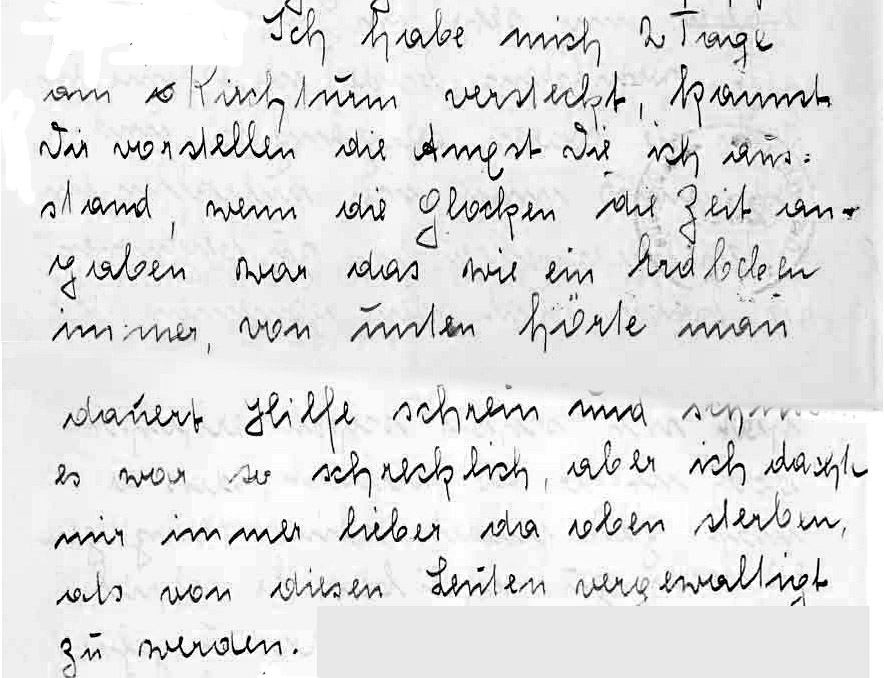 Ich habe mich 2 Tage
am Kirchturm versteckt, kannst
Dir vorstellen die Angst Die ich aus-
stand, wenn die Glocken die Zeit an-
gaben war das wie ein Erdbeben
immer, von unten hörte man
dauert Hilfe schrein und
es war so schrecklich, aber ich dacht
mir immer lieber da oben sterben,
als von diesen Leuten vergewaltigt
zu werden.